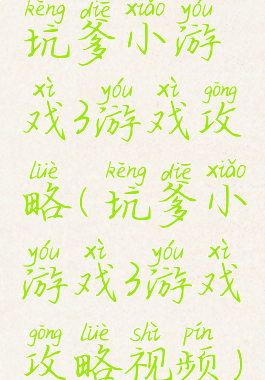 kēng diē xiǎo yóu
坑爹小游
xì yóu xì gōng
戏3游戏攻
lüè kēng diē xiǎo
略(坑爹小
yóu xì yóu xì
游戏3游戏
gōng lüè shì pín
攻略视频)